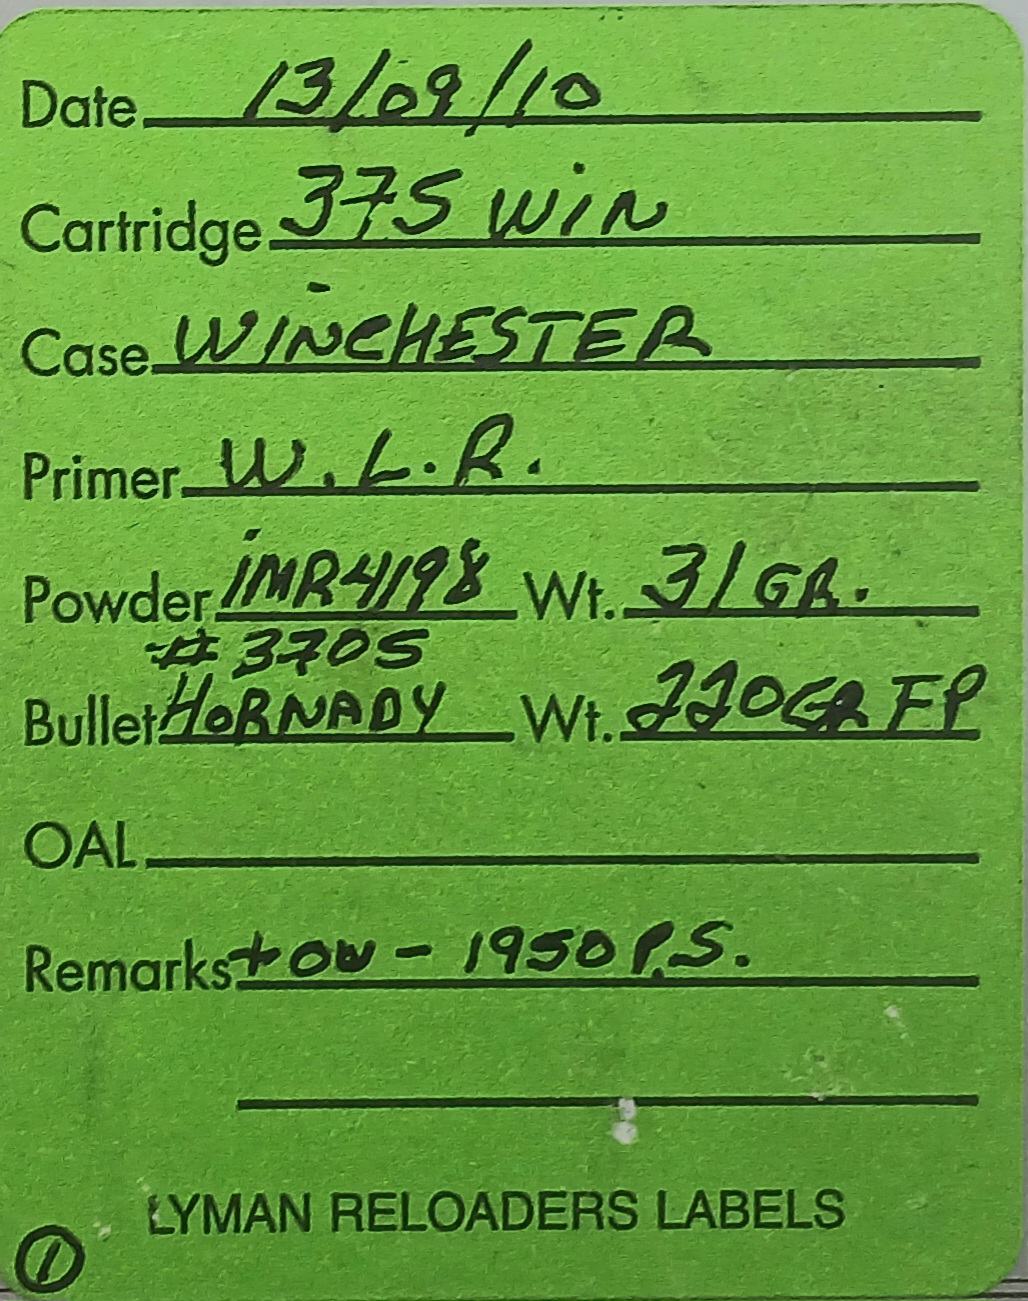 Date 13/09/10
Cartridge 375 WiN
Case WiNCHESTER
Primer W.L.R.
Powder iMR4198 Wt. 31 GR.
# 3705
Bullet HORNADY Wt. 220GR FP
OAL
Remarks + OW - 1950 P.S.
LYMAN RELOADERS LABELS
1